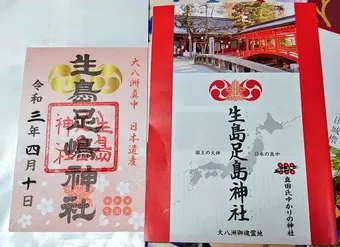 大八洲真中 日本遺産
生島足嶋神社
令和三年四月十日
生島足島神社
国土の大神
日本の真中
真田氏ゆかりの神社
大八洲御魂霊地